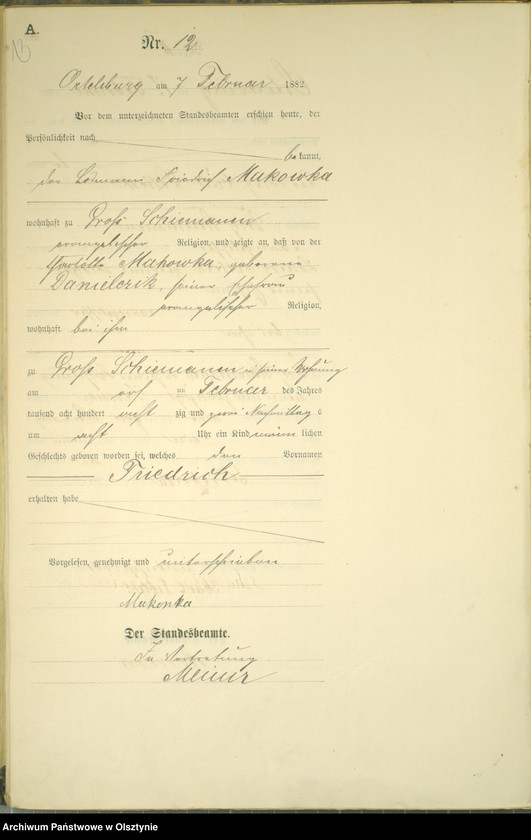 A.
13
Nr. 12
Ortelsburg am 7 Februar 1882
Vor dem unterzeichneten Standesbeamten erschien heute, der
Persönlichkeit nach
bekannt,
der Friedrich Makowka
wohnhaft zu Groß Schiemanen
evangelischer Religion, und zeigte an, daß von der
Charlotte Makowka, geborene
Danielczik, seiner Ehefrau
evangelischer Religion,
wohnhaft bei ihm
zu Groß Schiemanen in seiner Wohnung
am Februar des Jahres
tausend acht hundert acht zig und zwei Nachmittag s
um acht Uhr ein Kind männ lichen
Geschlechts geboren worden sei, welches den Vornamen
Friedrich
erhalten habe
Vorgelesen, genehmigt und unterschrieben
Makonka
Der Standesbeamte.
In Vertretung
Archiwum Państwowe w Olsztynie